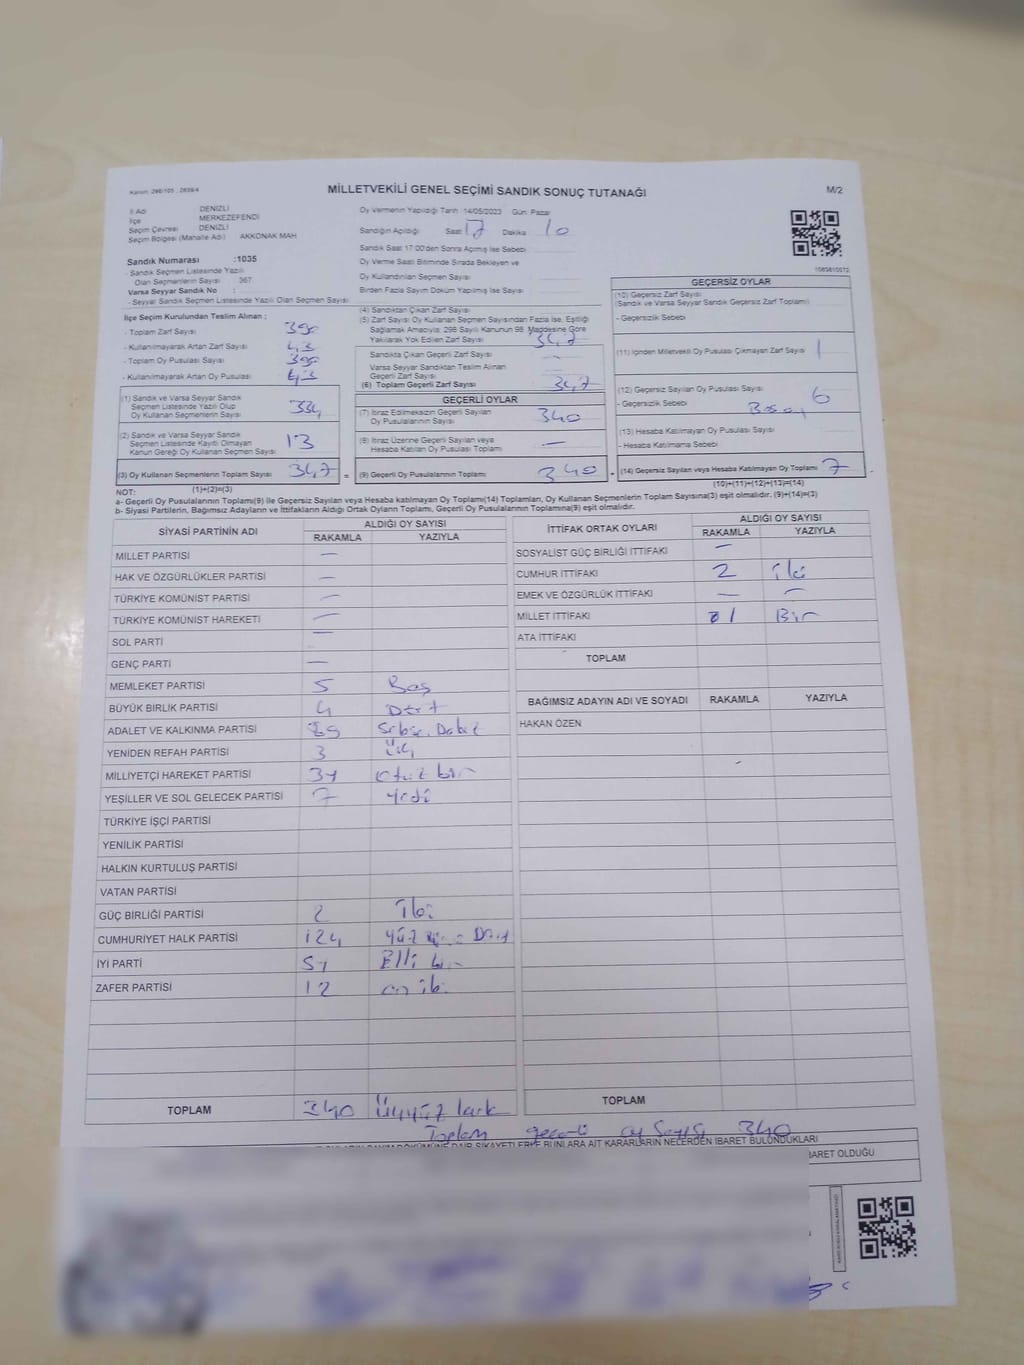 Kanun: 298/105 ; 2839/4
MİLLETVEKİLİ GENEL SEÇİMİ SANDIK SONUÇ TUTANAĞI
M/2
İl Adı DENİZLİ
İlçe MERKEZEFENDİ
Seçim Çevresi DENİZLİ
Seçim Bölgesi (Mahalle Adı) AKKONAK MAH
Sandık Numarası :1035
- Sandık Seçmen Listesinde Yazılı
Olan Seçmenlerin Sayısı : 367
Varsa Seyyar Sandık No :
- Seyyar Sandık Seçmen Listesinde Yazılı Olan Seçmen Sayısı
Oy Vermenin Yapıldığı Tarih :14/05/2023 Gün: Pazar
Sandığın Açıldığı Saat 17 Dakika 10
Sandık Saat 17:00'den Sonra Açılmış İse Sebebi
Oy Verme Saati Bitiminde Sırada Bekleyen ve
Oy Kullandırılan Seçmen Sayısı
Birden Fazla Sayım Döküm Yapılmış İse Sayısı
İlçe Seçim Kurulundan Teslim Alınan :
- Toplam Zarf Sayısı 390
- Kullanılmayarak Artan Zarf Sayısı 43
- Toplam Oy Pusulası Sayısı 390
- Kullanılmayarak Artan Oy Pusulası 43
(1) Sandık ve Varsa Seyyar Sandık
Seçmen Listesinde Yazılı Olup
Oy Kullanan Seçmenlerin Sayısı 334
(2) Sandık ve Varsa Seyyar Sandık
Seçmen Listesinde Kayıtlı Olmayan
Kanun Gereği Oy Kullanan Seçmen Sayısı 13
(3) Oy Kullanan Seçmenlerin Toplam Sayısı 347 =
(1)+(2)=(3)
(4) Sandıktan Çıkan Zarf Sayısı
(5) Zarf Sayısı Oy Kullanan Seçmen Sayısından Fazla İse, Eşitliği
Sağlamak Amacıyla; 298 Sayılı Kanunun 98. Maddesine Göre
Yakılarak Yok Edilen Zarf Sayısı 347
Sandıkta Çıkan Geçerli Zarf Sayısı —
Varsa Seyyar Sandıktan Teslim Alınan
Geçerli Zarf Sayısı —
(6) Toplam Geçerli Zarf Sayısı 347
GEÇERLİ OYLAR
(7) İtiraz Edilmeksizin Geçerli Sayılan
Oy Pusulalarının Sayısı 340
(8) İtiraz Üzerine Geçerli Sayılan veya
Hesaba Katılan Oy Pusulası Toplamı —
(9) Geçerli Oy Pusulalarının Toplamı 340 +
GEÇERSİZ OYLAR
(10) Geçersiz Zarf Sayısı
(Sandık ve Varsa Seyyar Sandık Geçersiz Zarf Toplamı)
- Geçersizlik Sebebi
(11) İçinden Milletvekili Oy Pusulası Çıkmayan Zarf Sayısı 1
(12) Geçersiz Sayılan Oy Pusulası Sayısı 6
- Geçersizlik Sebebi
(13) Hesaba Katılmayan Oy Pusulası Sayısı
- Hesaba Katılmama Sebebi
(14) Geçersiz Sayılan veya Hesaba Katılmayan Oy Toplamı 7
(10)+(11)+(12)+(13)=(14)
NOT:
a- Geçerli Oy Pusulalarının Toplamı(9) ile Geçersiz Sayılan veya Hesaba katılmayan Oy Toplamı(14) Toplamları, Oy Kullanan Seçmenlerin Toplam Sayısına(3) eşit olmalıdır. (9)+(14)=(3)
b- Siyasi Partilerin, Bağımsız Adayların ve İttifakların Aldığı Ortak Oyların Toplamı, Geçerli Oy Pusulalarının Toplamına(9) eşit olmalıdır.
SİYASİ PARTİNİN ADI ALDIĞI OY SAYISI
RAKAMLA YAZIYLA
MİLLET PARTİSİ —
HAK VE ÖZGÜRLÜKLER PARTİSİ —
TÜRKİYE KOMÜNİST PARTİSİ —
TÜRKİYE KOMÜNİST HAREKETİ —
SOL PARTİ —
GENÇ PARTİ —
MEMLEKET PARTİSİ 5 Beş
BÜYÜK BİRLİK PARTİSİ 4 Dört
ADALET VE KALKINMA PARTİSİ
YENİDEN REFAH PARTİSİ 3 Üç
MİLLİYETÇİ HAREKET PARTİSİ 31 otuz bir
YEŞİLLER VE SOL GELECEK PARTİSİ 7 yedi
TÜRKİYE İŞÇİ PARTİSİ
YENİLİK PARTİSİ
HALKIN KURTULUŞ PARTİSİ
VATAN PARTİSİ
GÜÇ BİRLİĞİ PARTİSİ 2 İki
CUMHURİYET HALK PARTİSİ 124 yüz Dört
İYİ PARTİ 51 Elli bir
ZAFER PARTİSİ 12 on iki
TOPLAM 340 Üçyüz kırk
İTTİFAK ORTAK OYLARI ALDIĞI OY SAYISI
RAKAMLA YAZIYLA
SOSYALİST GÜÇ BİRLİĞİ İTTİFAKI —
CUMHUR İTTİFAKI 2 İki
EMEK VE ÖZGÜRLÜK İTTİFAKI — —
MİLLET İTTİFAKI 1 Bir
ATA İTTİFAKI
TOPLAM
BAĞIMSIZ ADAYIN ADI VE SOYADI RAKAMLA YAZIYLA
HAKAN ÖZEN
TOPLAM
Toplam geçerli oy sayısı 340
SAYIM DÖKÜMÜNE DAİR ŞİKAYETLERLE BUNLARA AİT KARARLARIN NELERDEN İBARET BULUNDUKLARI
BARET OLDUĞU